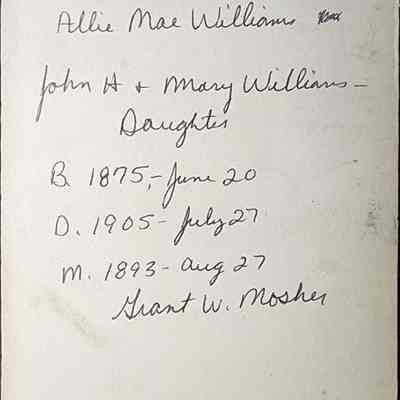 Allie Mae Williams
John H + Mary Williams -
Daughter
B. 1875,- June 20
D. 1905 - July 27
M. 1893 - Aug 27
Grant W. Mosher